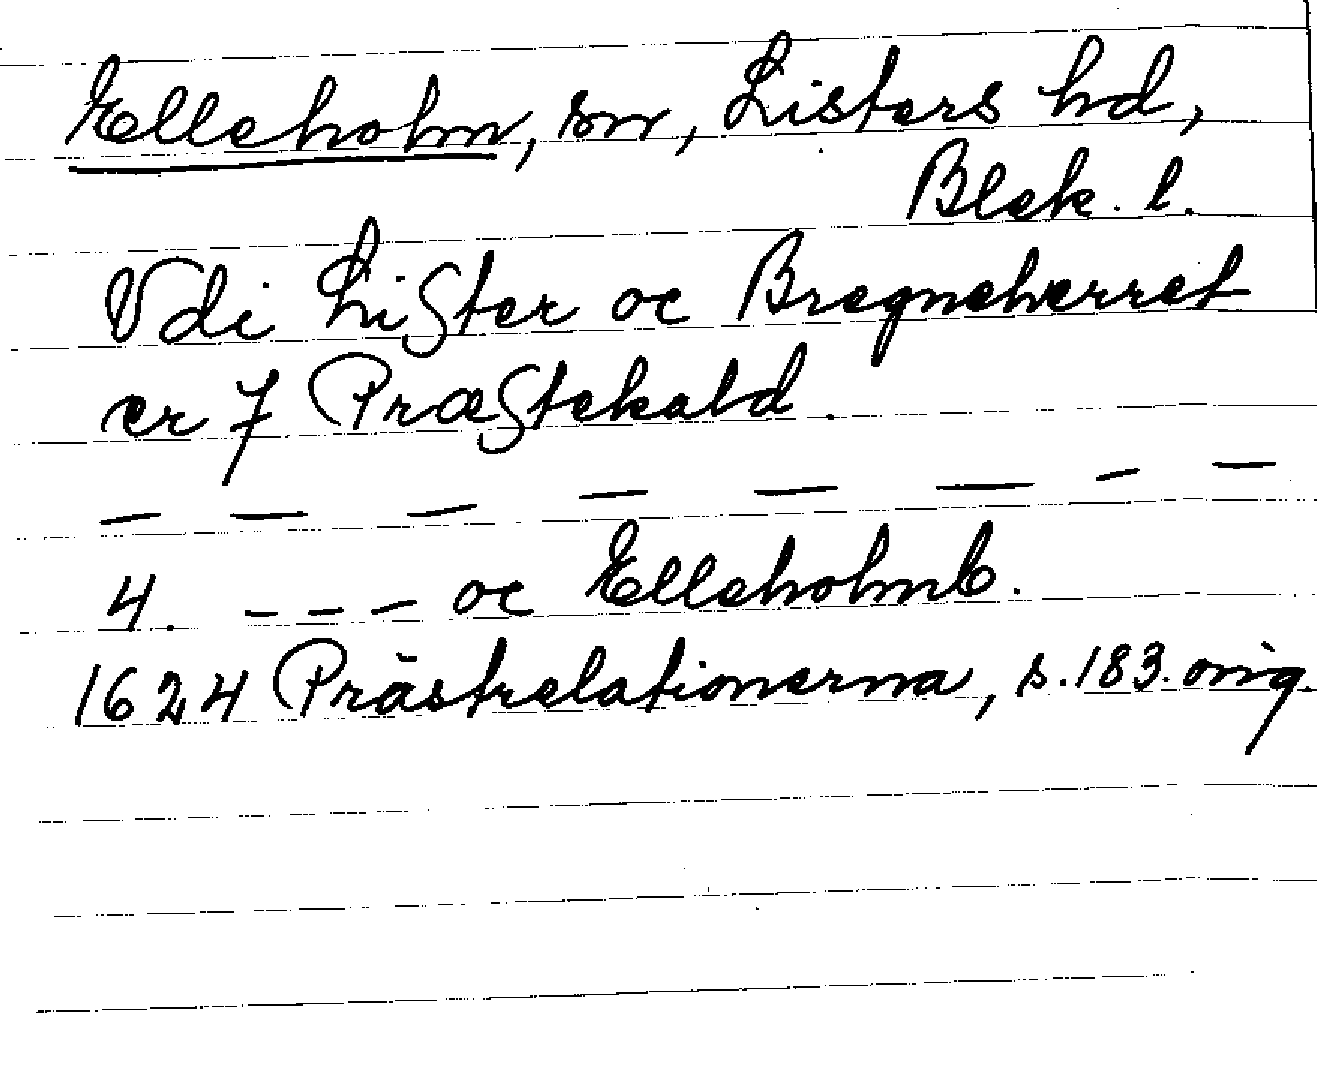 Elleholm, sn, Listers hd,
Blek. l.
Vdi Lister oc Bregneherret
er 7 Præstekald.
— — — — — — — —
4. --- oc Elleholmb.
1624 Prästrelationerna, s. 183. orig.